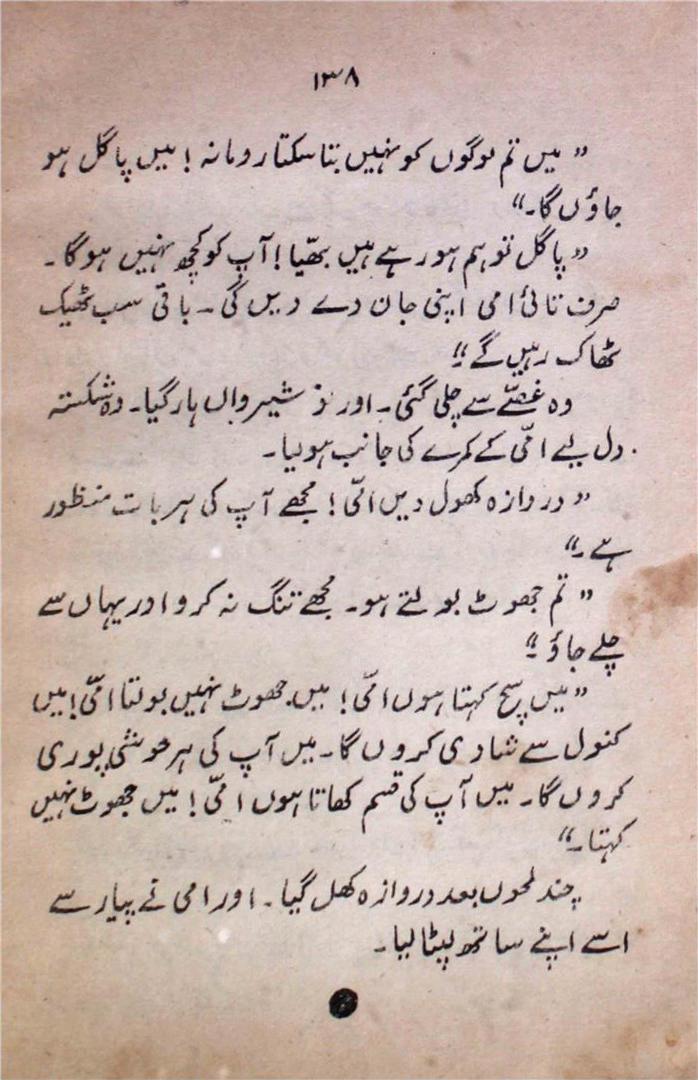 ۱۳۸
” میں تم لوگوں کو نہیں بتا سکتا رومانہ ! میں پاگل ہو
جاؤں گا۔“
” پاگل تو ہم ہو رہے ہیں بھیّا ! آپ کو کچھ نہیں ہوگا۔
صرف تائی امی اپنی جان دے دیں گی۔ باقی سب ٹھیک
ٹھاک رہیں گے“
وہ غصّے سے چلی گئی۔ اور نوشیرواں ہار گیا۔ وہ شکستہ
دل لیے امّی کے کمرے کی جانب ہو لیا۔
” دروازہ کھول دیں امّی ! مجھے آپ کی ہر بات منظور
ہے۔“
” تم جھوٹ بولتے ہو۔ مجھے تنگ نہ کرو اور یہاں سے
چلے جاؤ“
” میں سچ کہتا ہوں امّی ! میں جھوٹ نہیں بولتا امّی ! میں
کنول سے شادی کروں گا۔ میں آپ کی ہر خوشی پوری
کروں گا۔ میں آپ کی قسم کھاتا ہوں امّی ! میں جھوٹ نہیں
کہتا۔“
چند لمحوں بعد دروازہ کھل گیا۔ اور امی نے پیار سے
اسے اپنے ساتھ لپٹا لیا۔